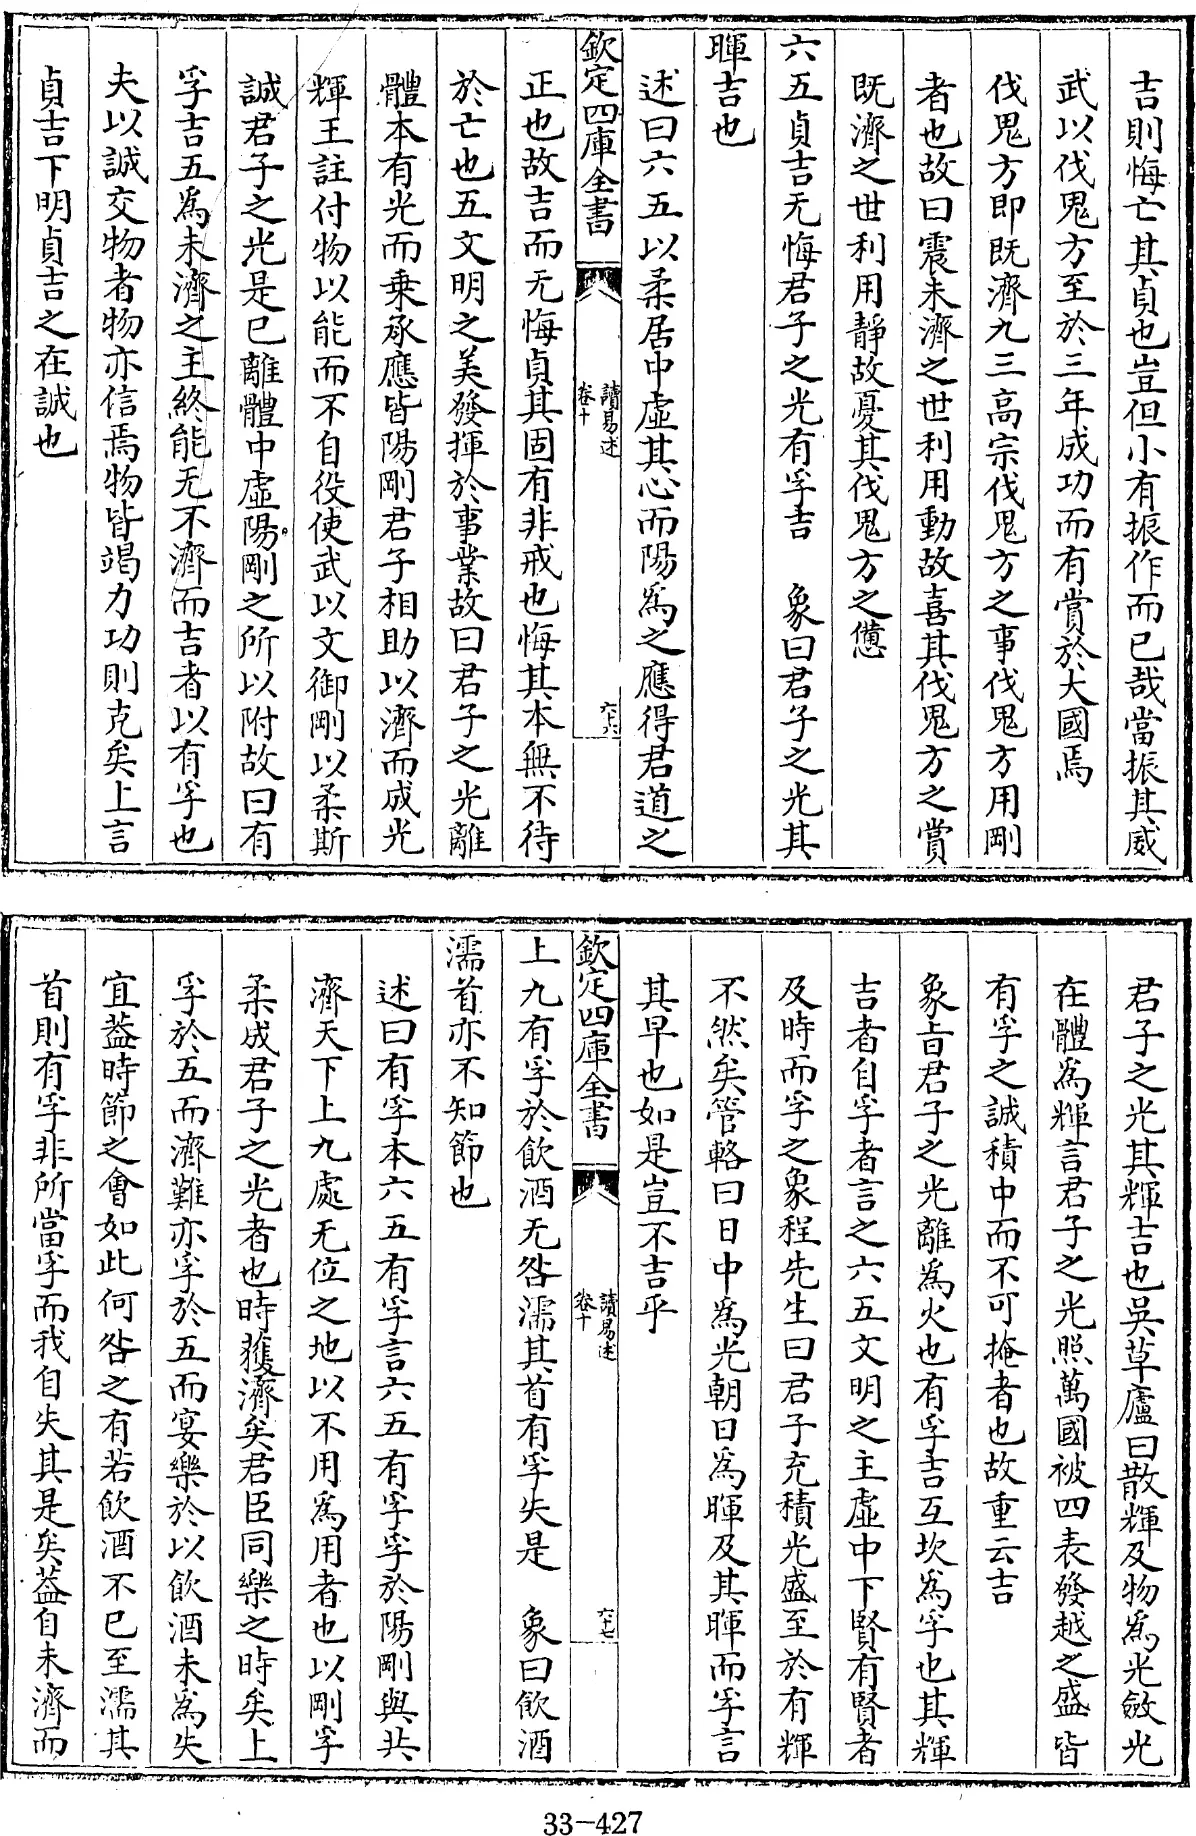 吉則悔亡其貞也豈但小有振作而已哉當振其威
武以伐鬼方至於三年成功而有賞於大國焉
伐鬼方即既濟九三高宗伐鬼方之事伐鬼方用剛
者也故曰震未濟之世利用動故喜其伐鬼方之賞
既濟之世利用靜故憂其伐鬼方之憊
六五貞吉无悔君子之光有孚吉　象曰君子之光其
暉吉也
述曰六五以柔居中虛其心而陽為之應得君道之
欽定四庫全書
讀易述
卷十
六十六
正也故吉而无悔貞其固有非戒也悔其本無不待
於亡也五文明之美發揮於事業故曰君子之光離
體本有光而乗承應皆陽剛君子相助以濟而成光
輝王註付物以能而不自役使武以文御剛以柔斯
誠君子之光是已離體中虛陽剛之所以附故曰有
孚吉五為未濟之主終能无不濟而吉者以有孚也
夫以誠交物者物亦信焉物皆竭力功則克矣上言
貞吉下明貞吉之在誠也
君子之光其輝吉也吳草廬曰散輝及物為光斂光
在體為輝言君子之光照萬國被四表發越之盛皆
有孚之誠積中而不可掩者也故重云吉
象旨君子之光離為火也有孚吉互坎為孚也其輝
吉者自孚者言之六五文明之主虛中下賢有賢者
及時而孚之象程先生曰君子充積光盛至於有輝
不然矣管輅曰日中為光朝日為暉及其暉而孚言
其早也如是豈不吉乎
欽定四庫全書
讀易述
卷十
六十七
上九有孚於飲酒无咎濡其首有孚失是　象曰飲酒
濡首亦不知節也
述曰有孚本六五有孚言六五有孚孚於陽剛與共
濟天下上九處无位之地以不用為用者也以剛孚
柔成君子之光者也時獲濟矣君臣同樂之時矣上
孚於五而濟難亦孚於五而宴樂於以飲酒未為失
宜葢時節之會如此何咎之有若飲酒不已至濡其
首則有孚非所當孚而我自失其是矣葢自未濟而
33-427